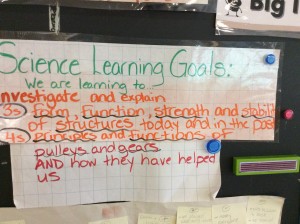 Big I
Science Learning Goals:
We are learning to...
investigate and explain
3s form, function, strength and stabili
of structures today and in the past
4s principles and functions of
pulleys and gears
AND how they have helped
us